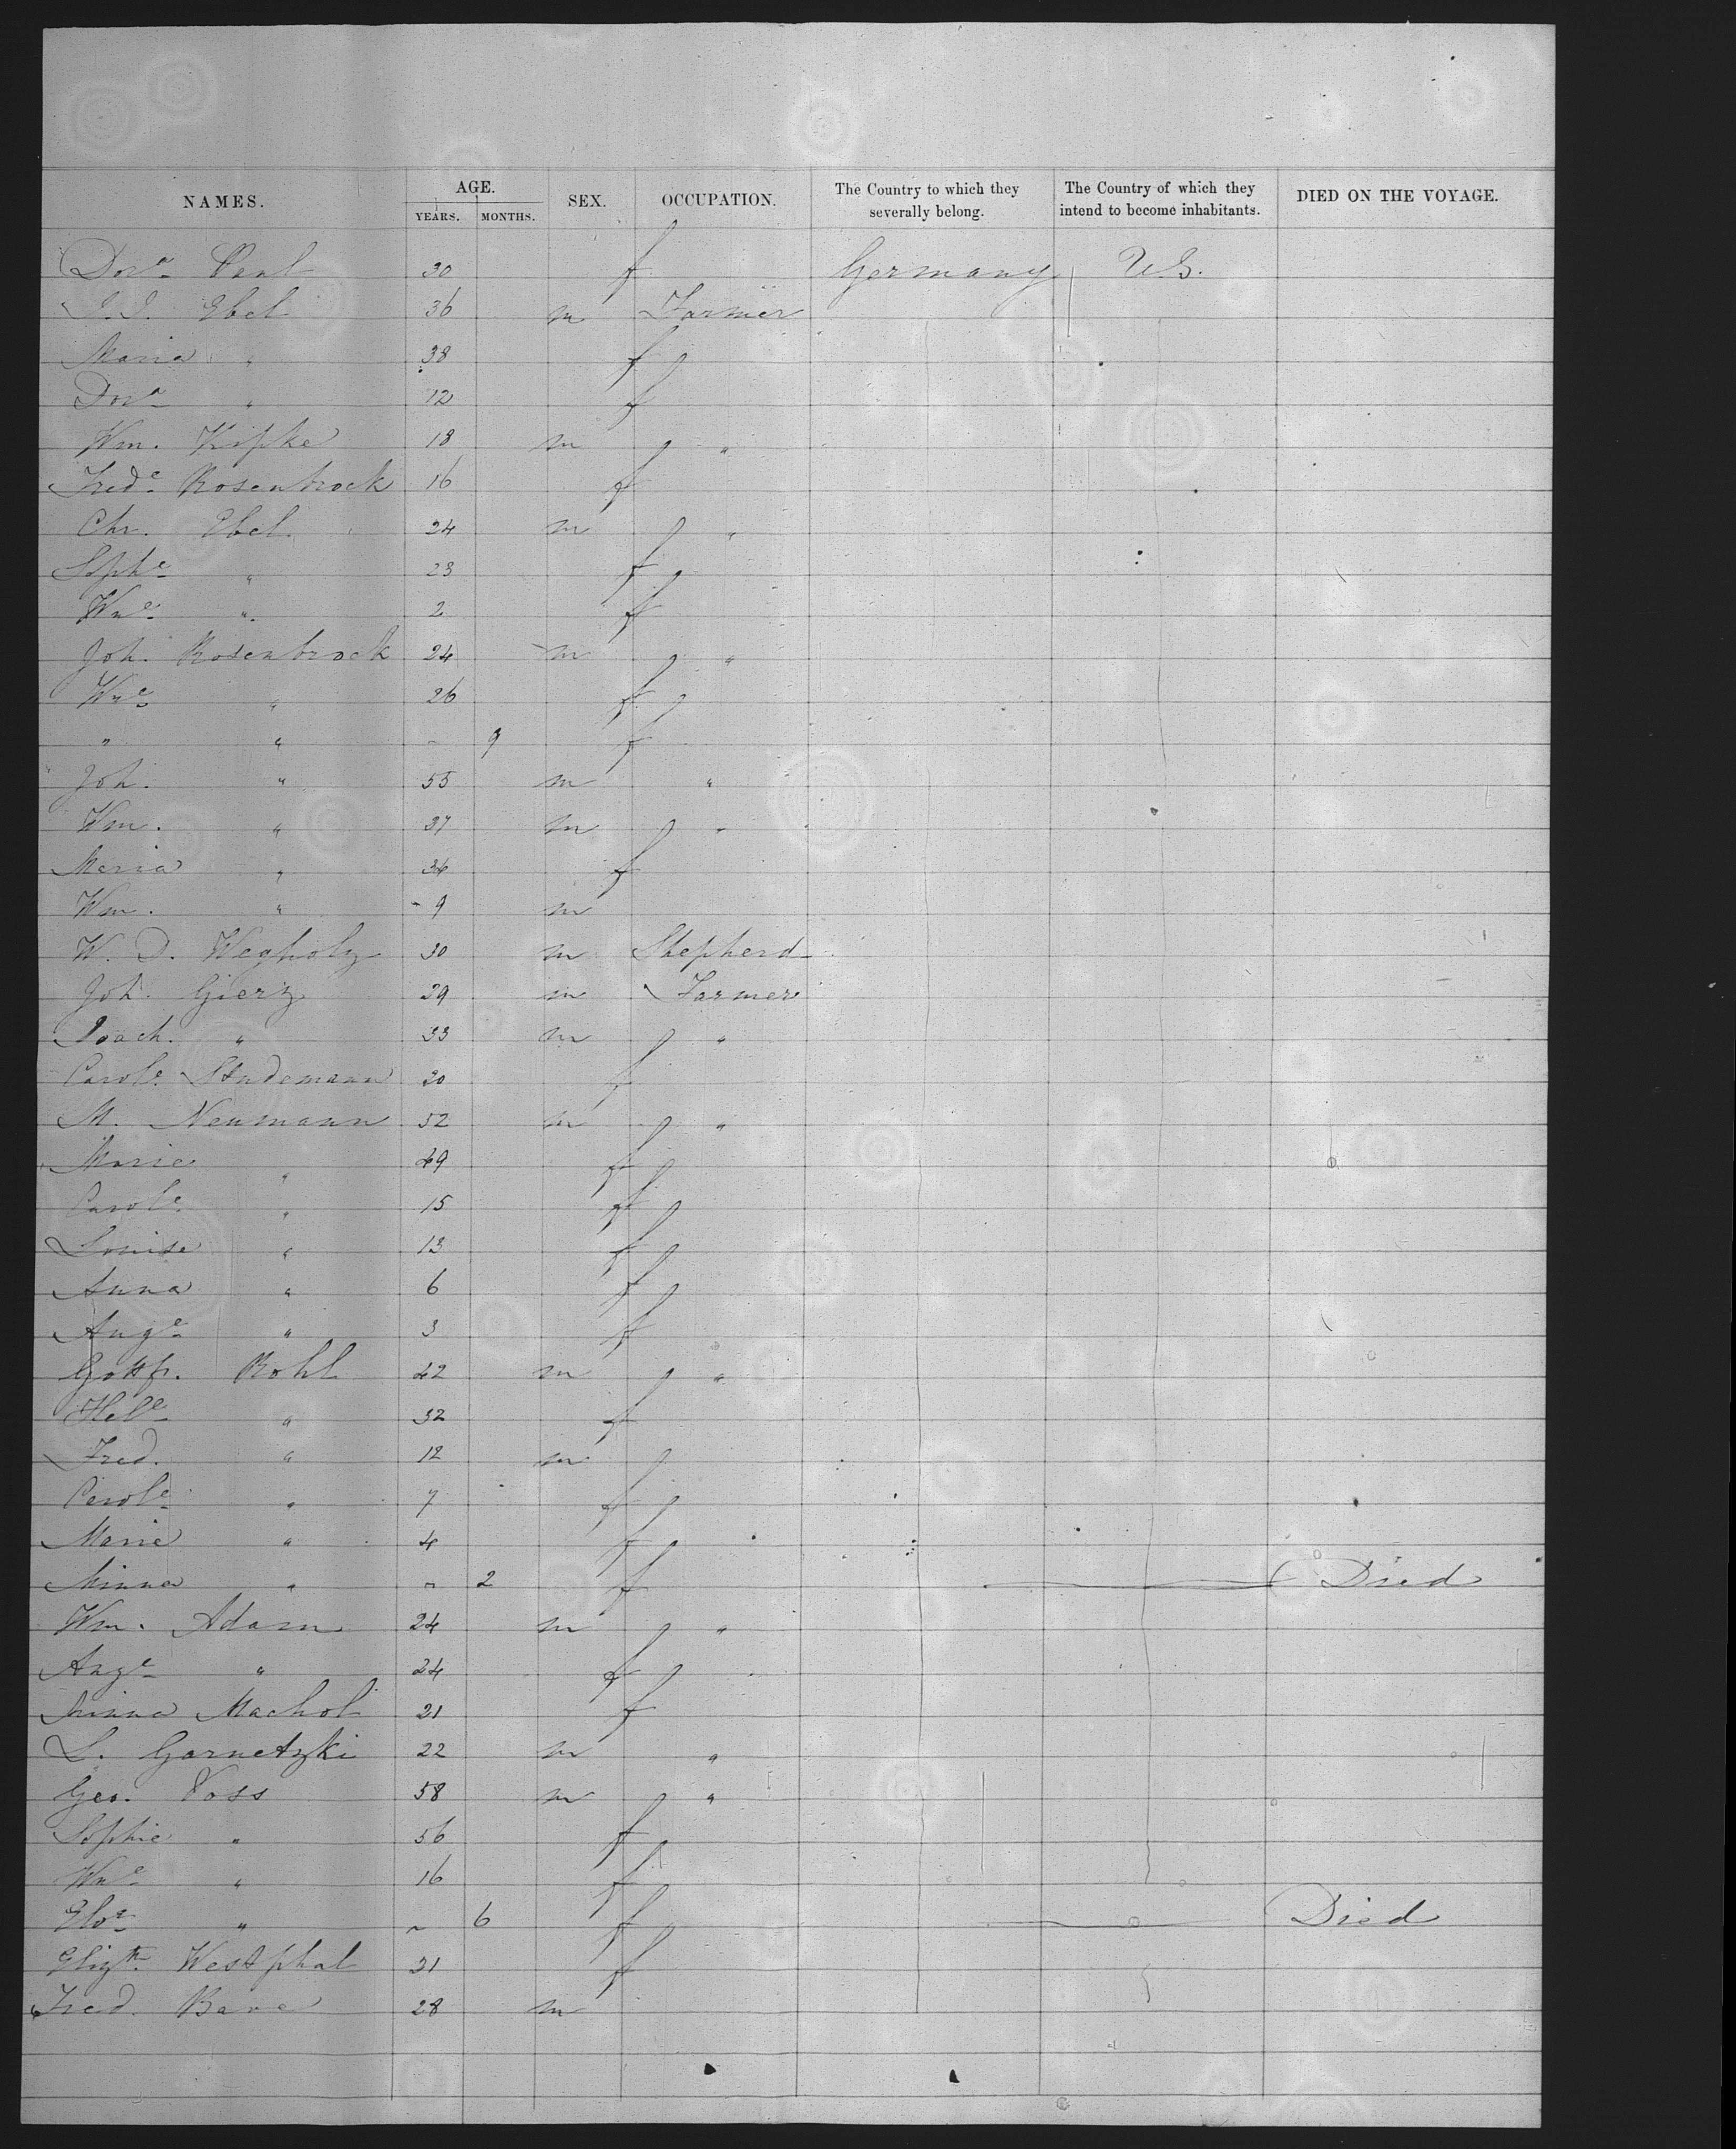 NAMES. AGE. SEX. OCCUPATION. The Country to which they severally belong. The Country of which they intend to become inhabitants. DIED ON THE VOYAGE.
YEARS. MONTHS.
Dor.a 30 f Germany U.S.
J. J. Ebel 36 m Farmer
Maria " 38 f
Dor.a " 12 f
Wm. Kipke 18 m "
Fred.e Rosenbrock 16 f
Chr. Ebel 24 m "
Soph.e " 23 f
Wn.e " 2 f
Joh. Rosenbrock 24 m "
Wn.e " 26 f
" " - 9 f
Joh. " 55 m "
Wm. " 37 m "
Maria " 34 f
Wm. " - 9 m
W. D. Wegholz 30 m Shepherd
Joh. Gierz 39 m Farmer
Joach. " 33 m "
Carol.e Studemann 20 f
M. Neumann 52 m "
Marie " 49 f
Carol.e " 15 f
Louise " 13 f
Anna " 6 f
Aug.e " 3 f
Gottfr. Rohl 42 m "
Hel.e " 32 f
Fred. " 12 m
Carol.e " 7 f
Marie " 4 f
Minna " - 2 f Died
Wm. Adam 24 m "
Aug.e " 24 f
Minna Machol 21 f
L. Garnetzki 22 m "
Geo. Voss 58 m "
Sophie " 56 f
Wn.e " 16 f
" - 6 f Died
Eliz.th Westphal 31 f
Fred. 28 m